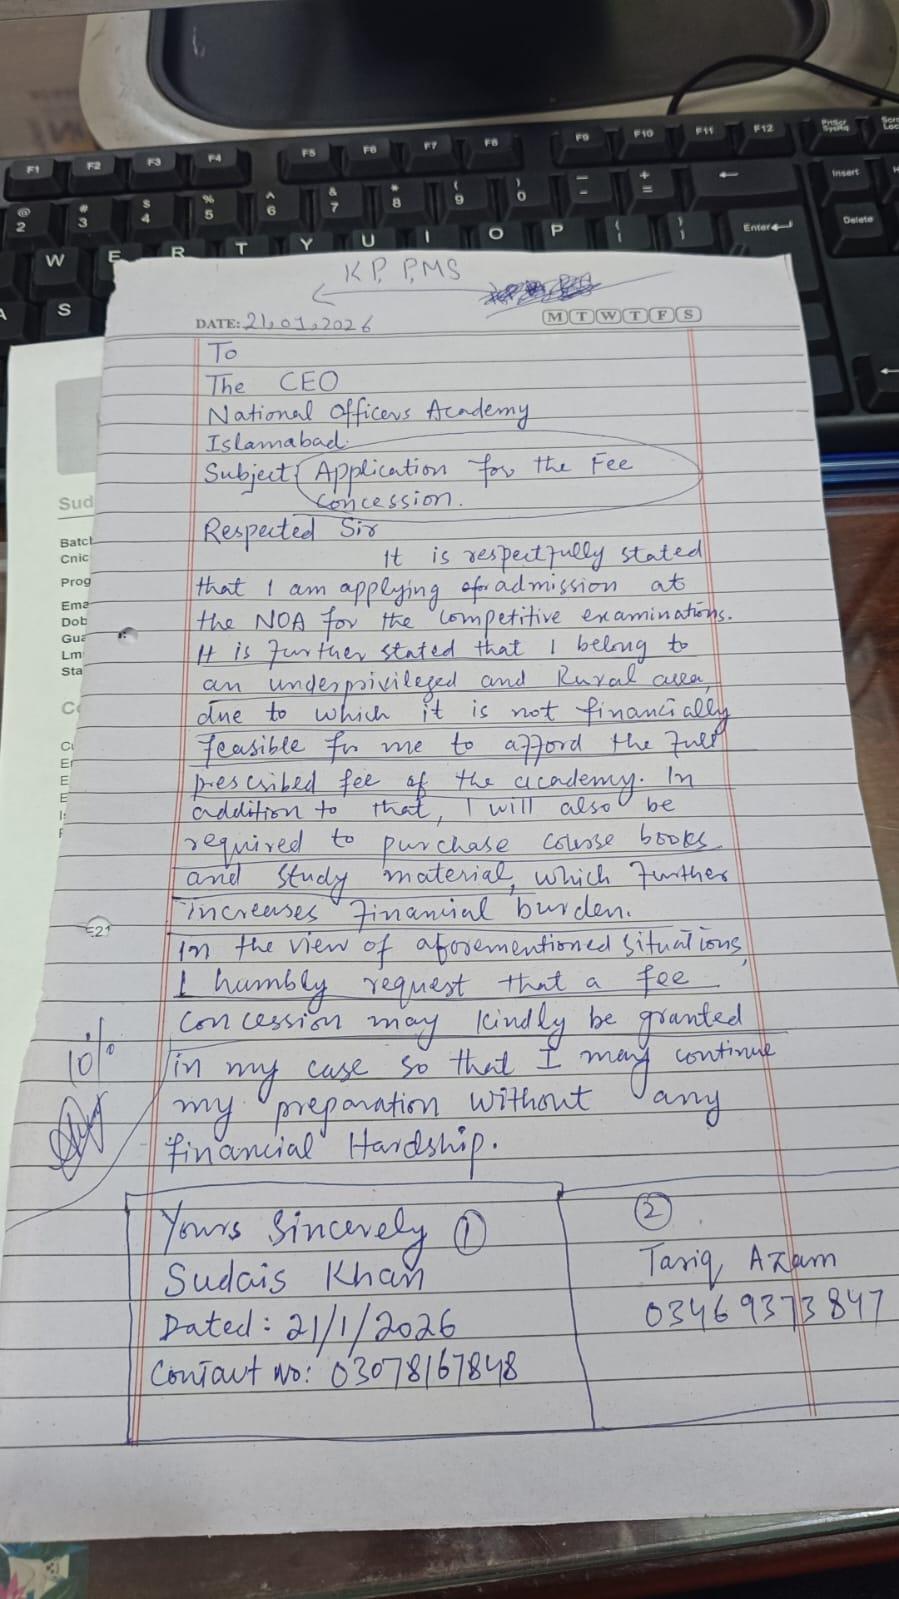 F1 F2 F3 F4 F5 F6 F7 F8 F9 F10 F11 F12 PrtScr SysRq
@ 2 # 3 $ 4 % 5 ^ 6 & 7 * 8 ( 9 ) 0 - + = Insert
W E R T Y U I O P Enter Delete
A S
KP, PMS
DATE: 21,01,2026 M T W T F S
To
The CEO
National Officers Academy
Islamabad.
Subject: Application for the Fee
Concession.
Respected Sir
It is respectfully stated
that I am applying for admission at
the NOA for the competitive examinations.
It is further stated that I belong to
an underprivileged and Rural area,
due to which it is not financially
feasible for me to afford the full
prescribed fee of the academy. In
addition to that, I will also be
required to purchase course books
and study material, which further
increases financial burden.
In the view of aforementioned situations,
I humbly request that a fee
concession may kindly be granted
in my case so that I may continue
my preparation without any
financial Hardship.
10%
Yours Sincerely ①
Sudais Khan
Dated: 21/1/2026
Contact No: 03078167848
②
Tariq Azam
03469373847
Sud
Batch
Cnic
Prog
Ema
Dob
Gua
Lm
Sta
E21